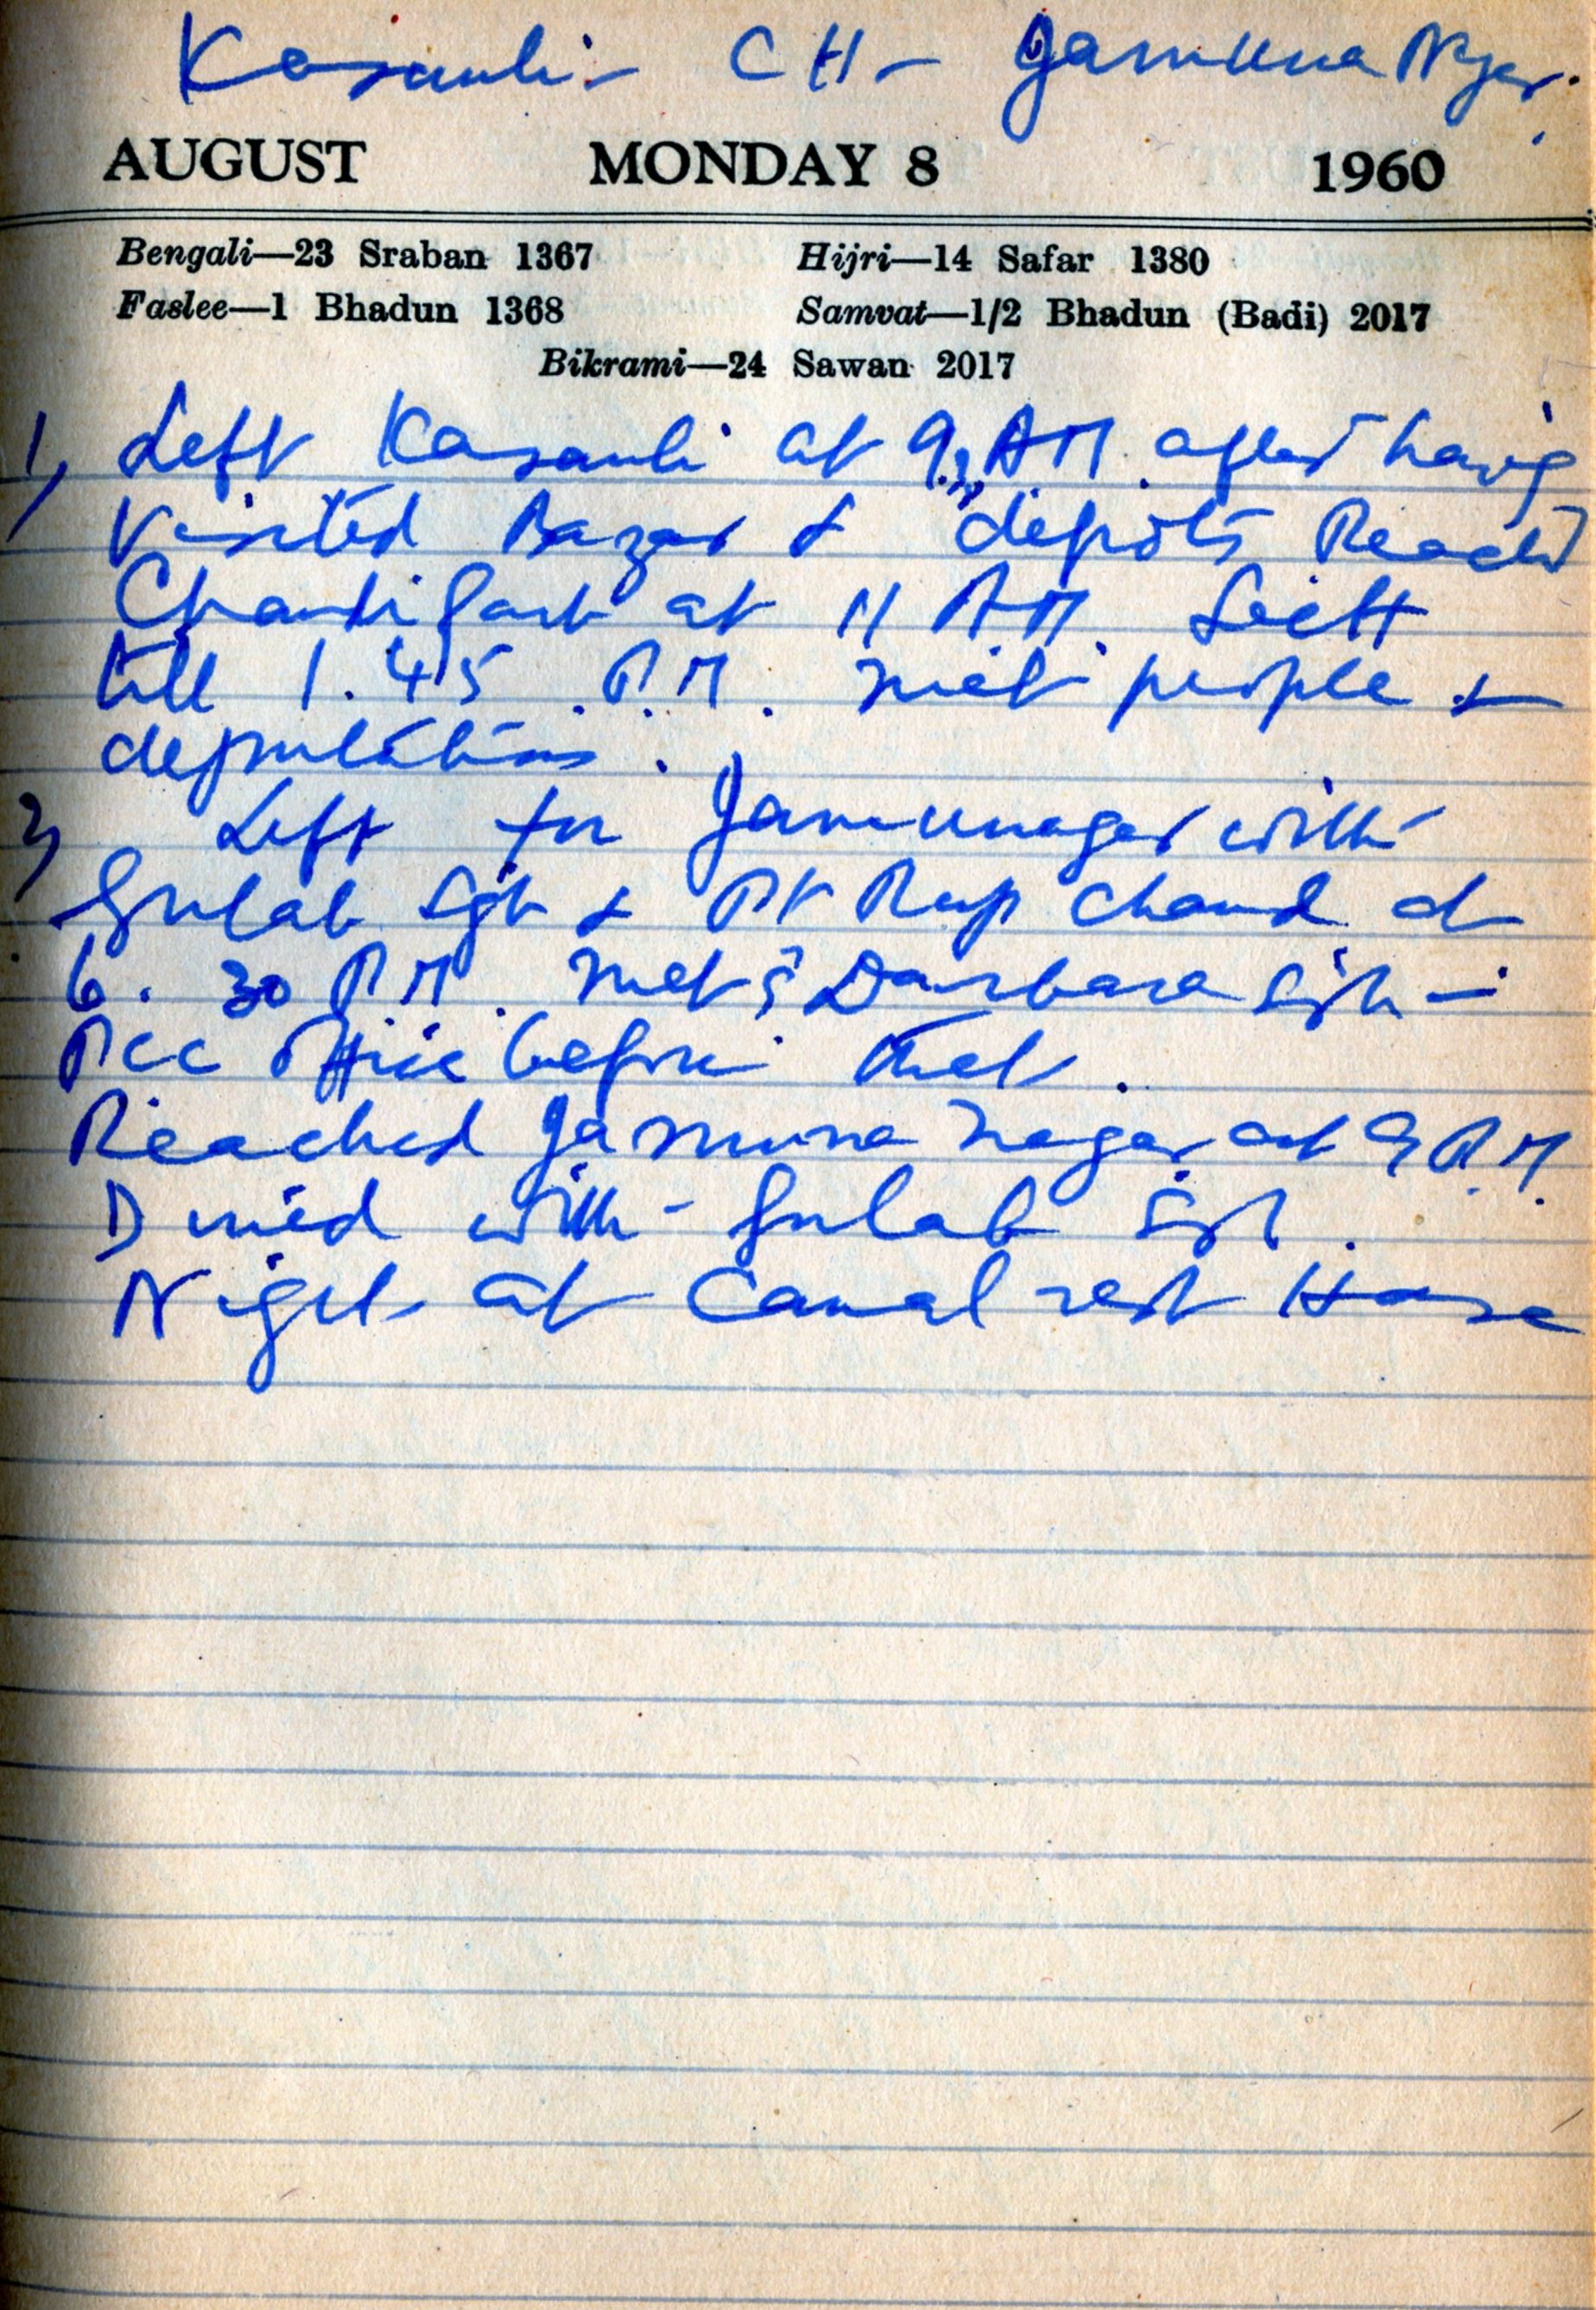 Kasauli - CH - Jamuna Ngar.
AUGUST MONDAY 8 1960
Bengali—23 Sraban 1367 Hijri—14 Safar 1380
Faslee—1 Bhadun 1368 Samvat—1/2 Bhadun (Badi) 2017
Bikrami—24 Sawan 2017
1, Left Kasauli at 9.30 A.M. after having
visited Bazar & depots Reached
Chandigarh at 11 A.M.
till 1.45 P.M. met people &
deputations.
2, Left for Jamunagar with
Gulab Sgh & Pt Rup Chand at
6.30 P.M. Met S Darbara Sigh -
PCC office before that.
Reached Jamuna Nagar at 9 P.M.
Dined with - Gulab Sgh.
Night at Canal rest House